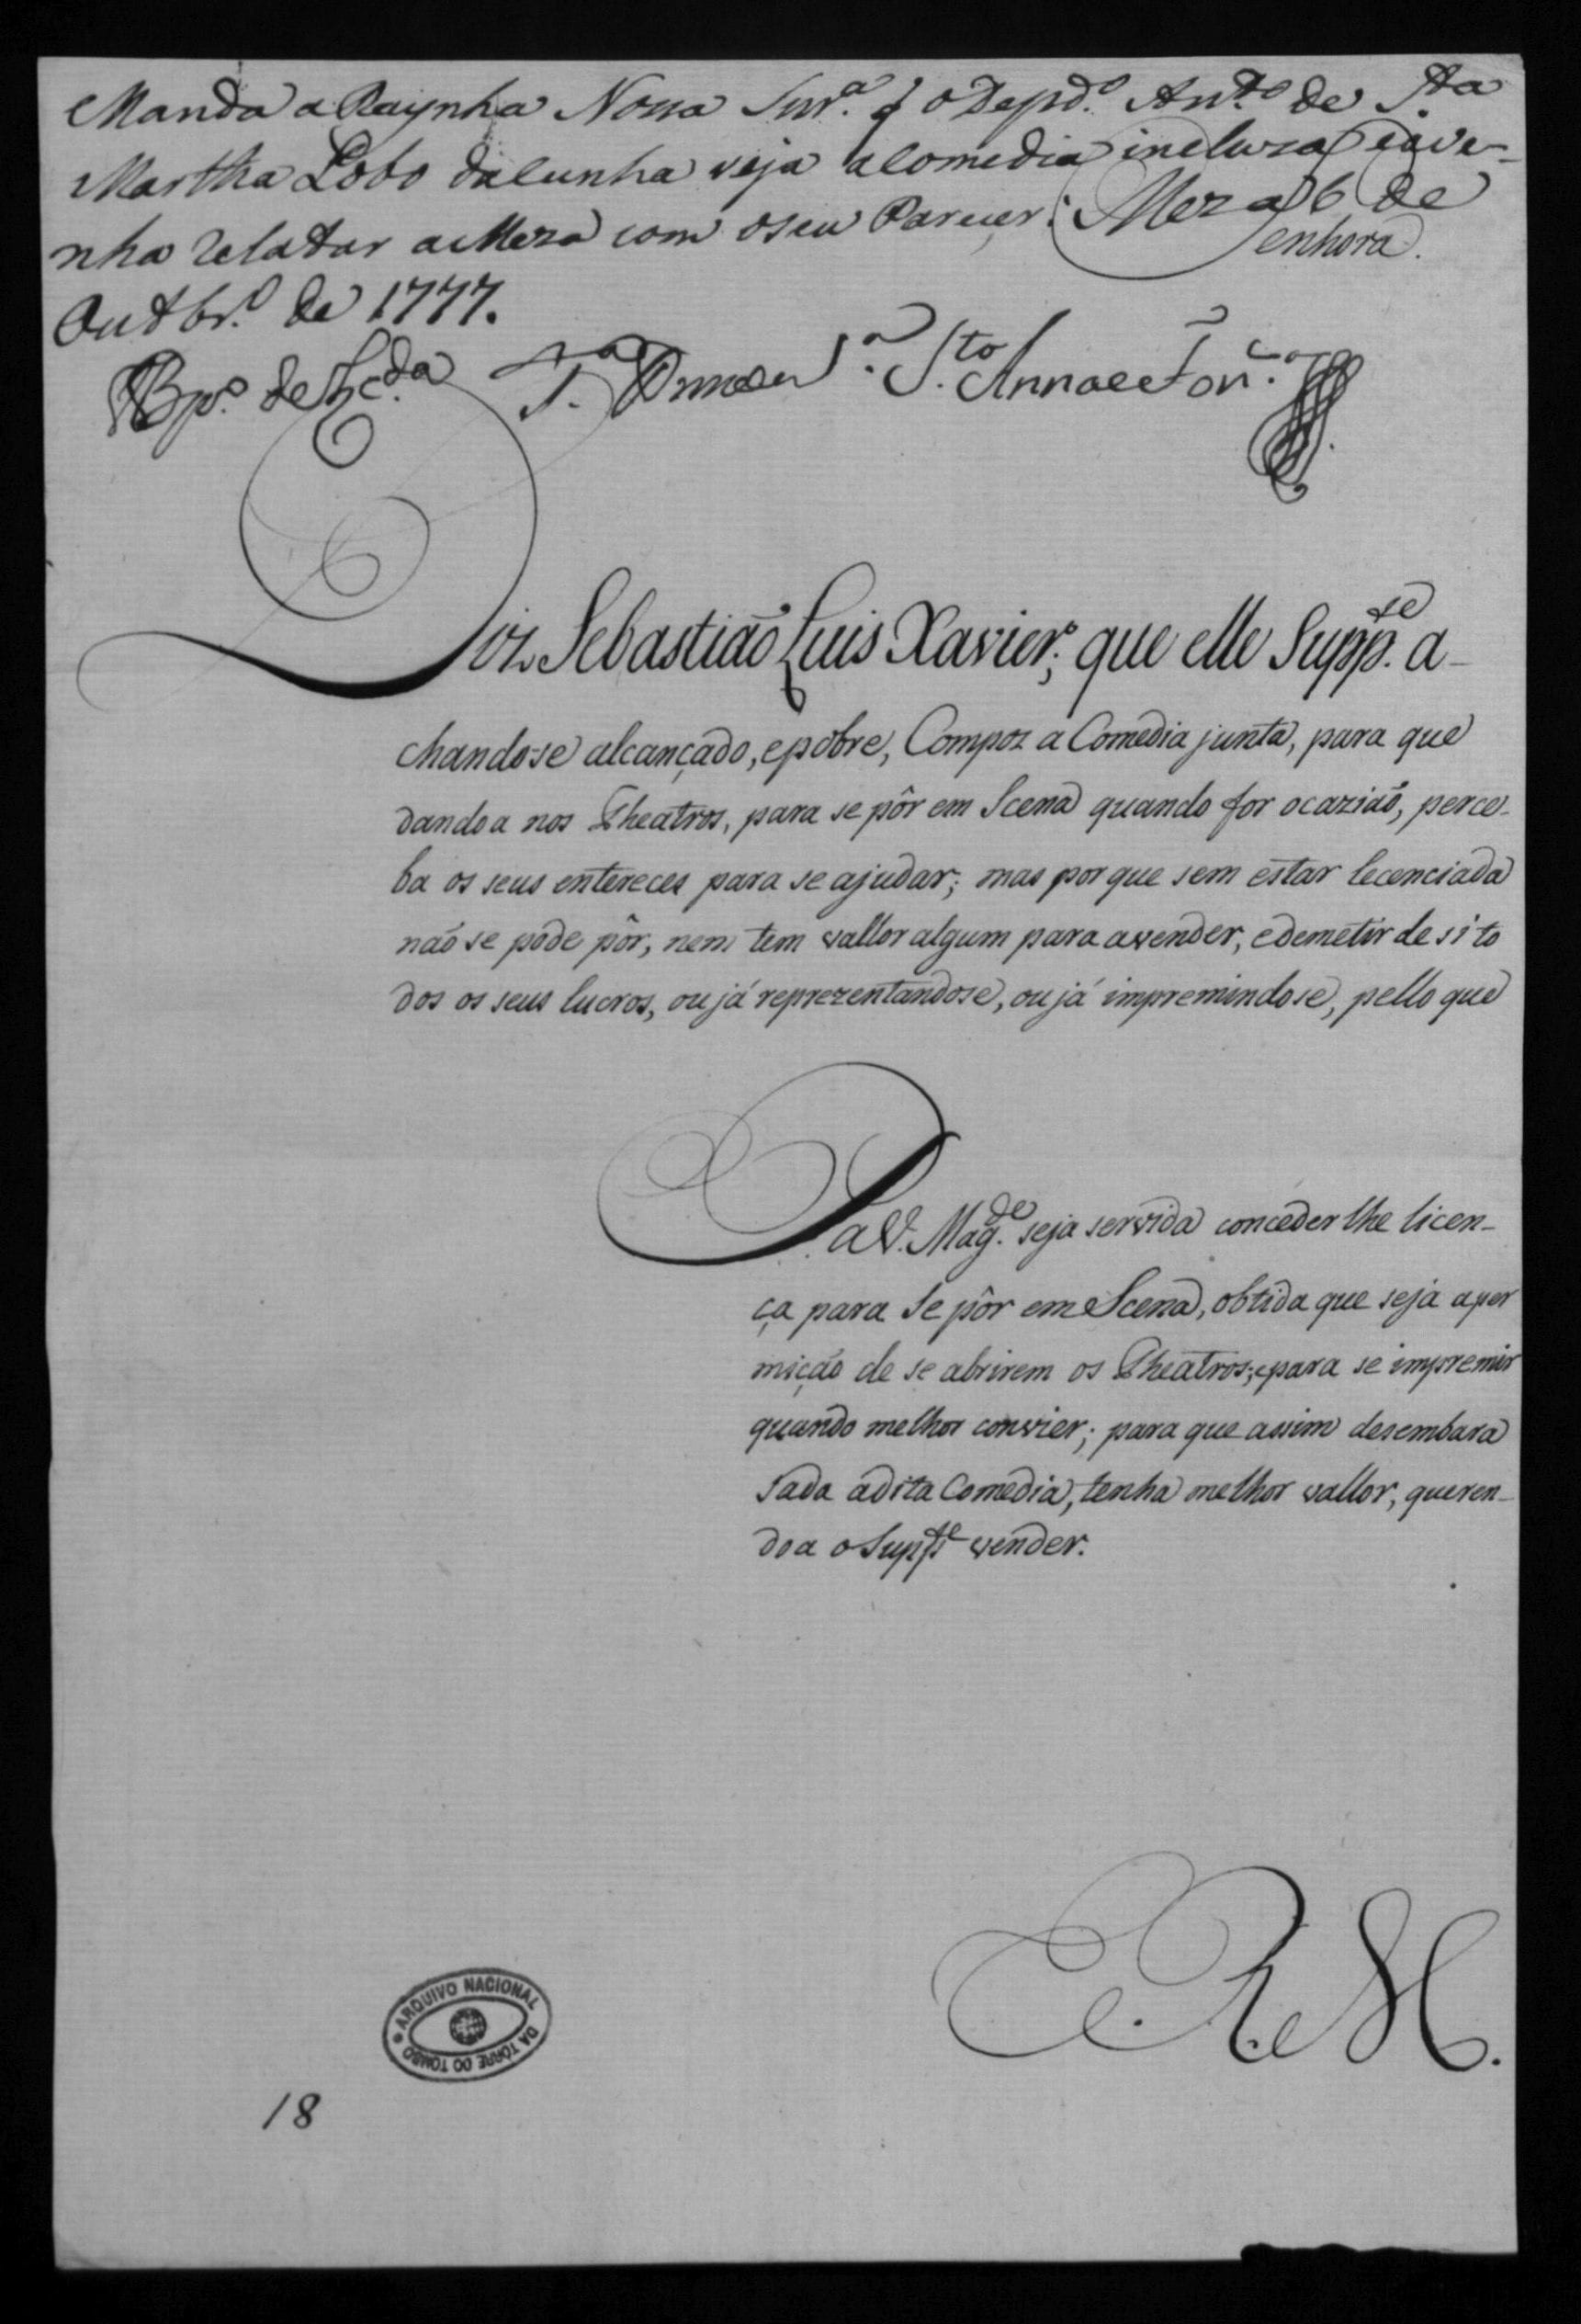 Manda a Raynha Nossa Snr.ª q o Depd.º Ant.º de S.ta
Martha Lobo da Cunha veja a Comedia incluza, e ave-
nha relatar a Meza com o seu Parecer. Meza 6 de
Senhora.
Outbr.º de 1777.
Bp.º de S.to Anna e Fon.ca
Diz Sebastião Luis Xavier; que elle Supp.te a-
chando-se alcançado, e pobre, Compoz a Comedia junta, para que
dandoa nos Theatros, para se pôr em Scena quando for ocazião, perce-
ba os seus entereces para se ajudar; mas por que sem estar lecenciada
não se póde pôr, nem tem vallor algum para a vender, e demetir de si to
dos os seus lucros, ou já reprezentandose, ou já impremindose, pello que
P. a V. Mag.de seja servida conceder lhe licen-
ça para se pôr em Scena, obtida que seja a per
mição de se abrirem os Theatros; e para se impremir
quando melhor convier; para que assim desembara
sada a dita Comedia, tenha melhor vallor, queren-
doa o Supp.te vender.
E. R. M.
ARQUIVO NACIONAL DA TÔRRE DO TOMBO
18